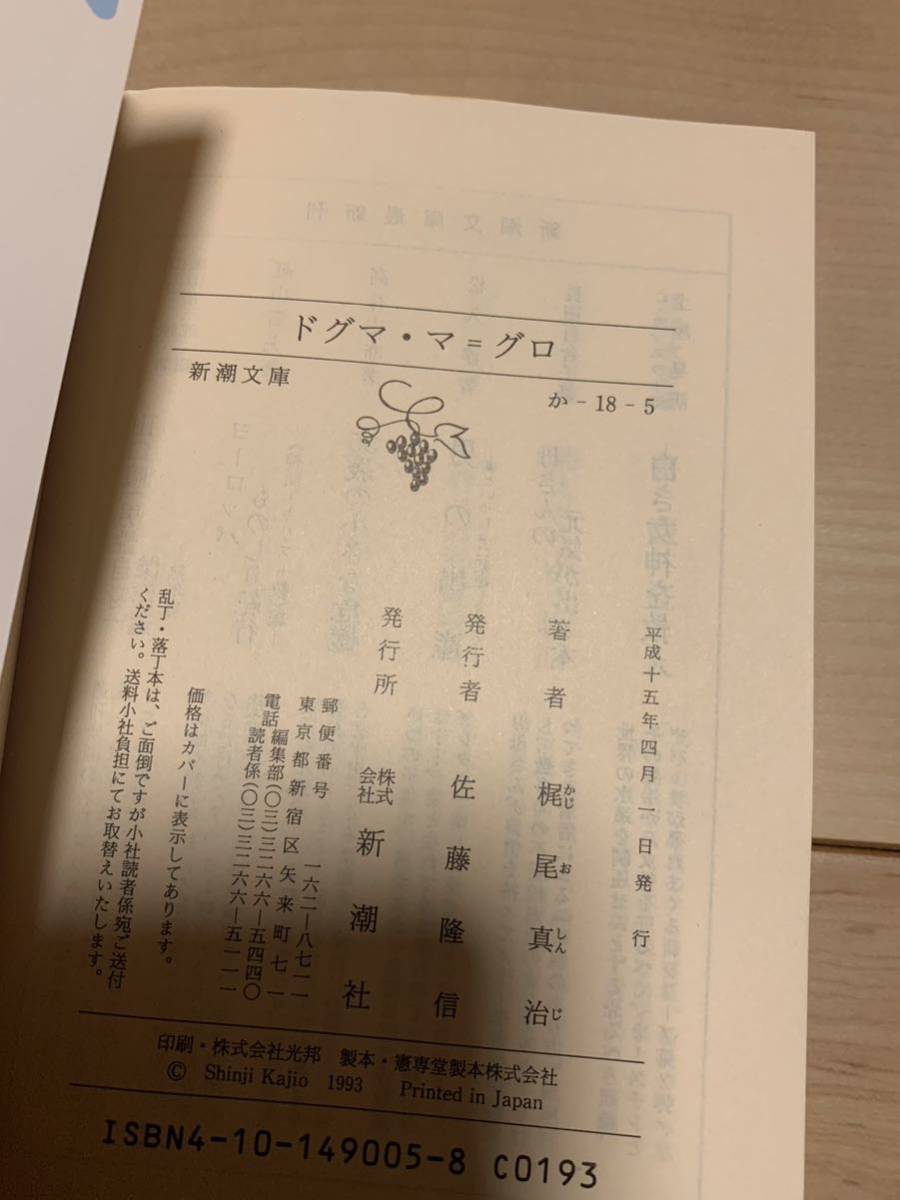 ドグマ・マ＝グロ
新潮文庫
か-18-5
平成十五年四月一日発行
著者 梶尾真治
かじ お しん じ
発行者 佐藤隆信
発行所 株式会社 新潮社
郵便番号 一六二―八七一一
東京都新宿区矢来町七一
電話 編集部(〇三)三二六六―五四四〇
読者係(〇三)三二六六―五一一一
価格はカバーに表示してあります。
乱丁・落丁本は、ご面倒ですが小社読者係宛ご送付
ください。送料小社負担にてお取替えいたします。
印刷・株式会社光邦 製本・憲専堂製本株式会社
© Shinji Kajio 1993 Printed in Japan
ISBN4-10-149005-8 C0193